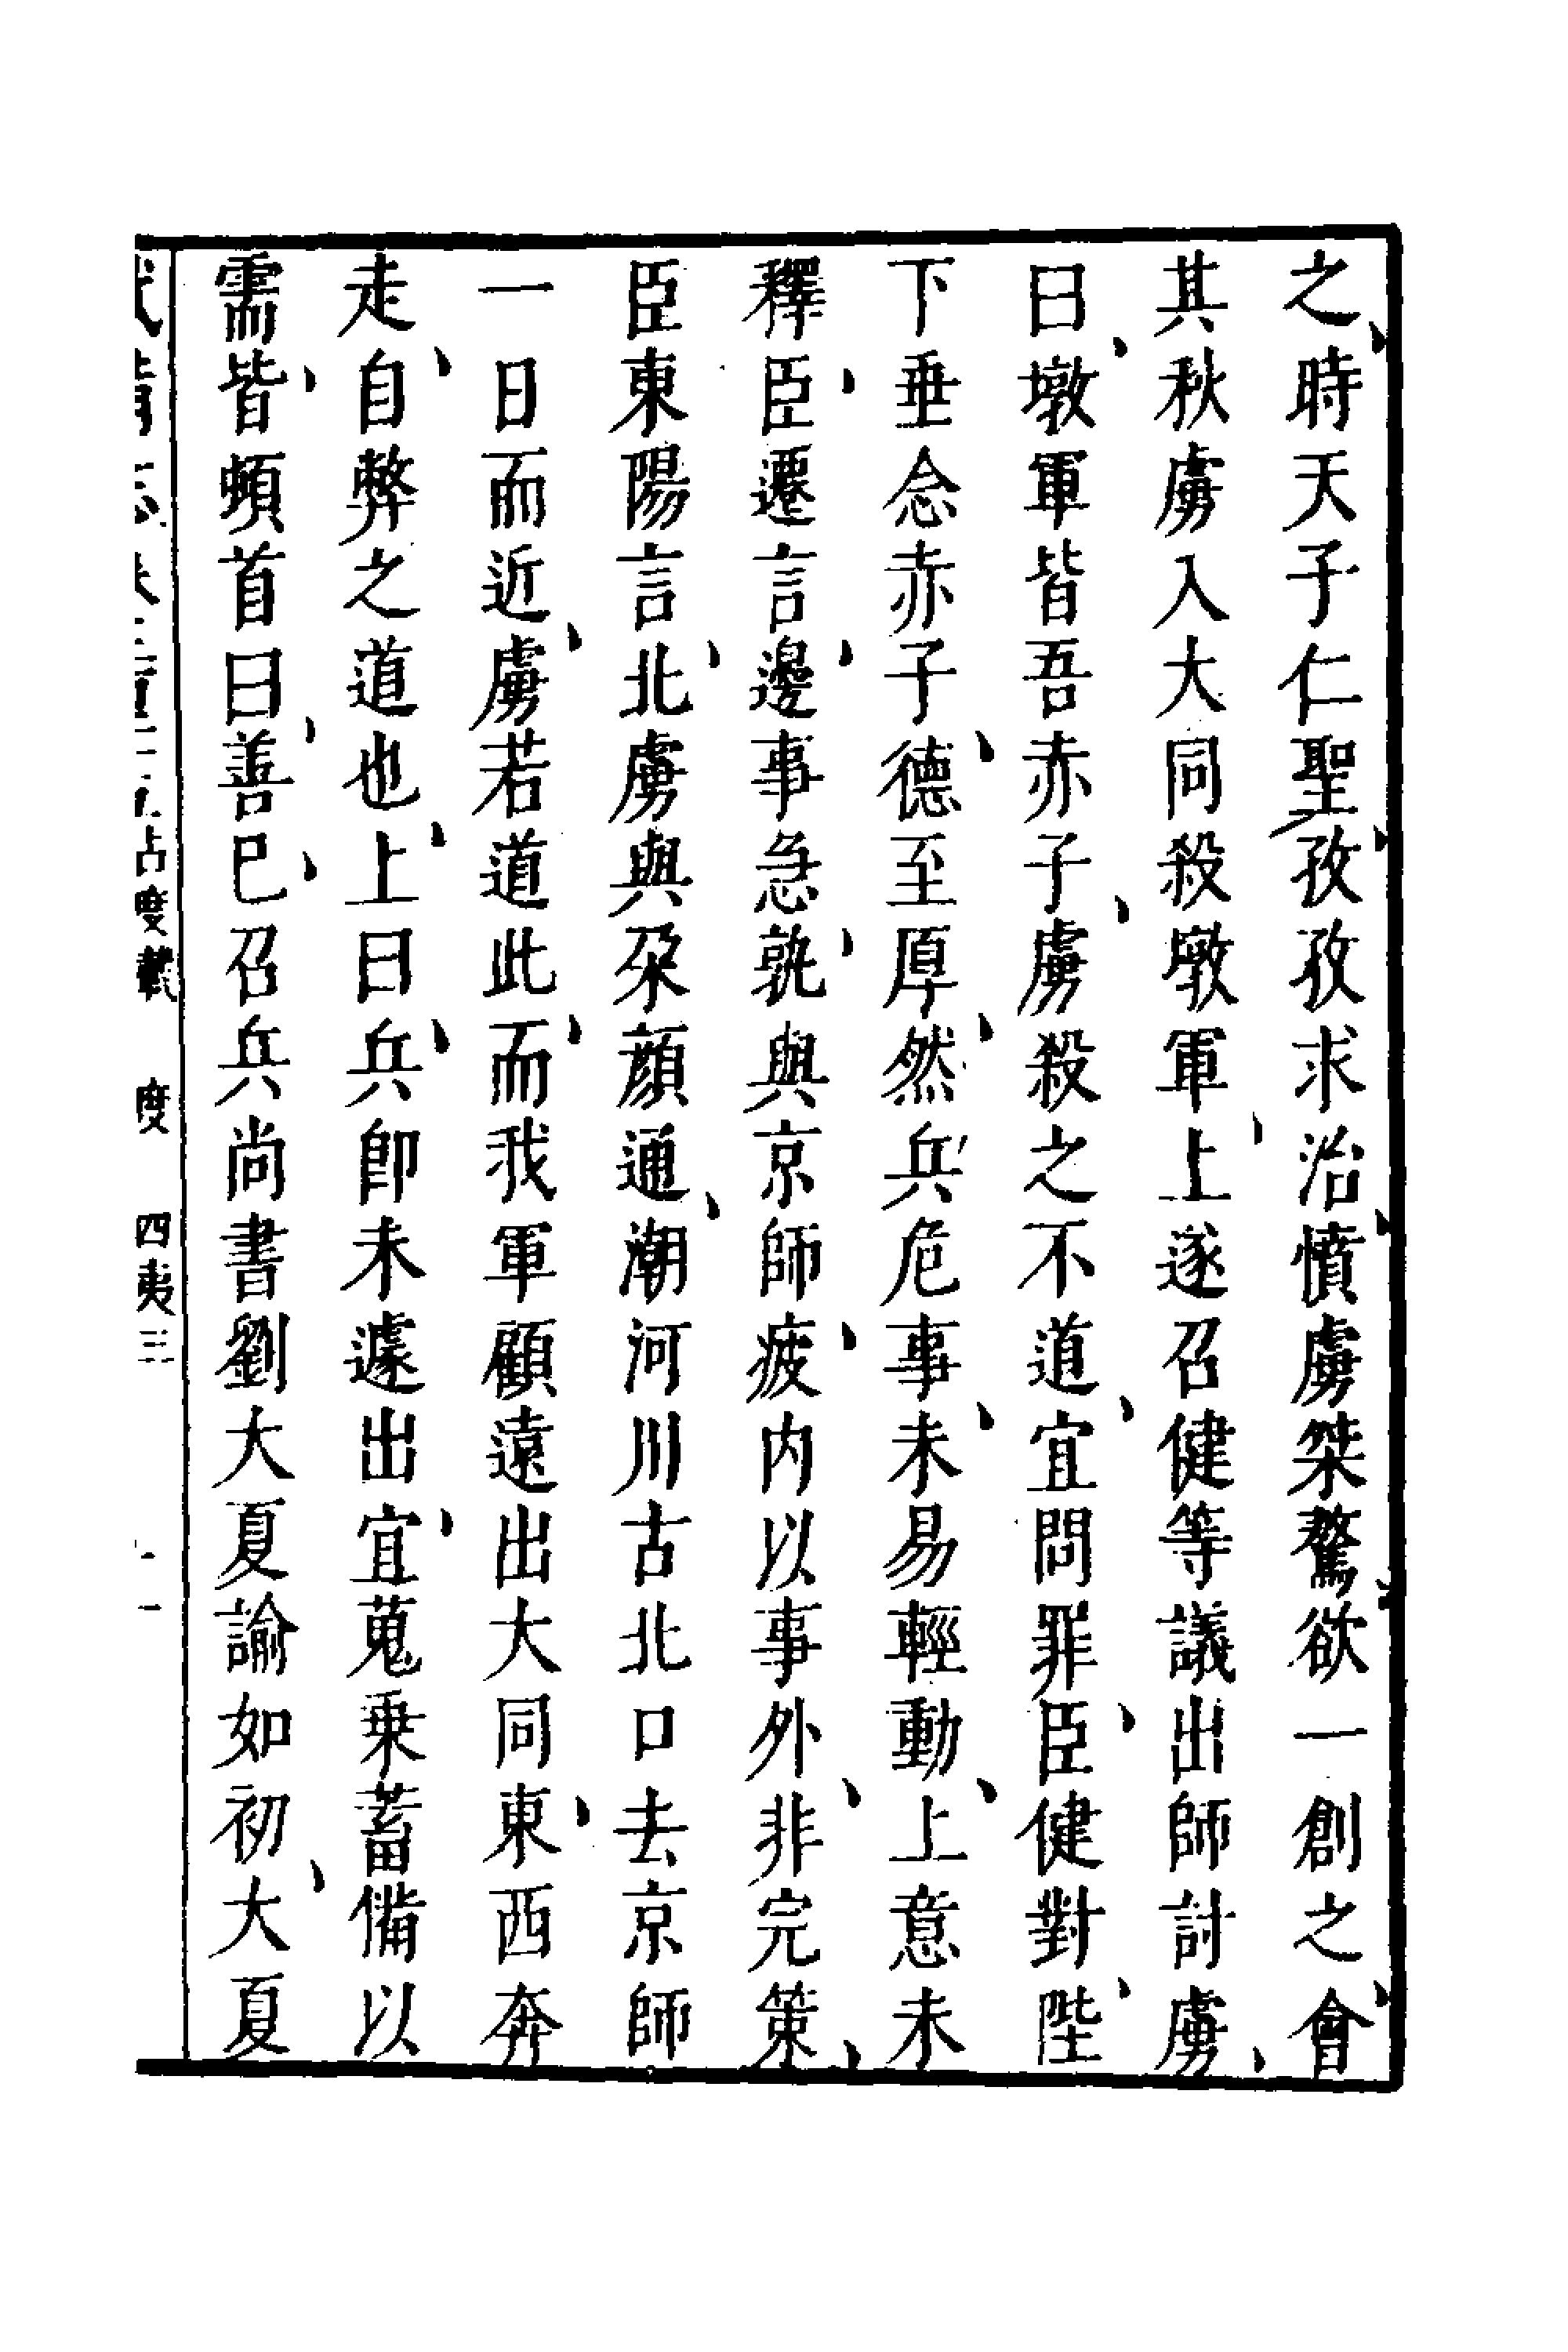 之時天子仁聖孜孜求治憤虜桀驁欲一創之會
其秋虜入大同殺墩軍上遂召健等議出師討虜
曰墩軍皆吾赤子虜殺之不道宜問罪臣健對陛
下垂念赤子德至厚然兵危事未易輕動上意未
釋臣遷言邊事急孰與京師疲内以事外非完策
臣東陽言北虜與朶顏通潮河川古北口去京師
一日而近虜若道此而我軍顧遠出大同東西奔
走自弊之道也上曰兵卽未遽出宜蒐乗蓄備以
需皆頓首曰善巳召兵尚書劉大夏諭如初大夏
占度載 度 四夷三